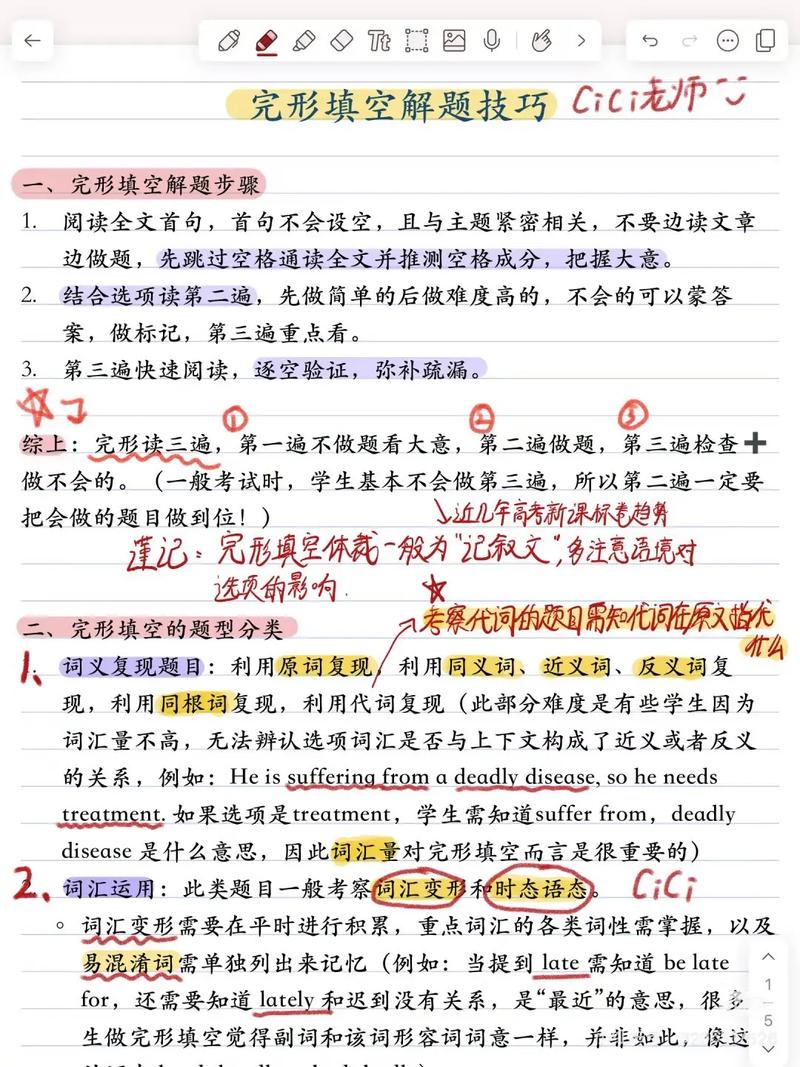 完形填空解题技巧 CiCi老师
一、完形填空解题步骤
1. 阅读全文首句，首句不会设空，且与主题紧密相关，不要边读文章
边做题，先跳过空格通读全文并推测空格成分，把握大意。
2. 结合选项读第二遍，先做简单的后做难度高的，不会的可以蒙答
案，做标记，第三遍重点看。
3. 第三遍快速阅读，逐空验证，弥补疏漏。
① ② ③
综上：完形读三遍，第一遍不做题看大意，第二遍做题，第三遍检查➕
做不会的。（一般考试时，学生基本不会做第三遍，所以第二遍一定要
把会做的题目做到位！）
近几年高考新课标卷趋势
谨记：完形填空体裁一般为“记叙文”，多注意语境对
选项的影响.
二、完形填空的题型分类
考察代词的题目需知代词在原文指代
什么
1. 词义复现题目：利用原词复现，利用同义词、近义词、反义词复
现，利用同根词复现，利用代词复现（此部分难度是有些学生因为
词汇量不高，无法辨认选项词汇是否与上下文构成了近义或者反义
的关系，例如：He is suffering from a deadly disease, so he needs
treatment. 如果选项是treatment，学生需知道suffer from，deadly
disease 是什么意思，因此词汇量对完形填空而言是很重要的）
2、词汇运用：此类题目一般考察词汇变形和时态语态。 CiCi
词汇变形需要在平时进行积累，重点词汇的各类词性需掌握，以及
易混淆词需单独列出来记忆（例如：当提到 late 需知道 be late
for，还需要知道 lately 和迟到没有关系，是“最近”的意思，很多
生做完形填空觉得副词和该词形容词词意一样，并非如此，像这
1
5